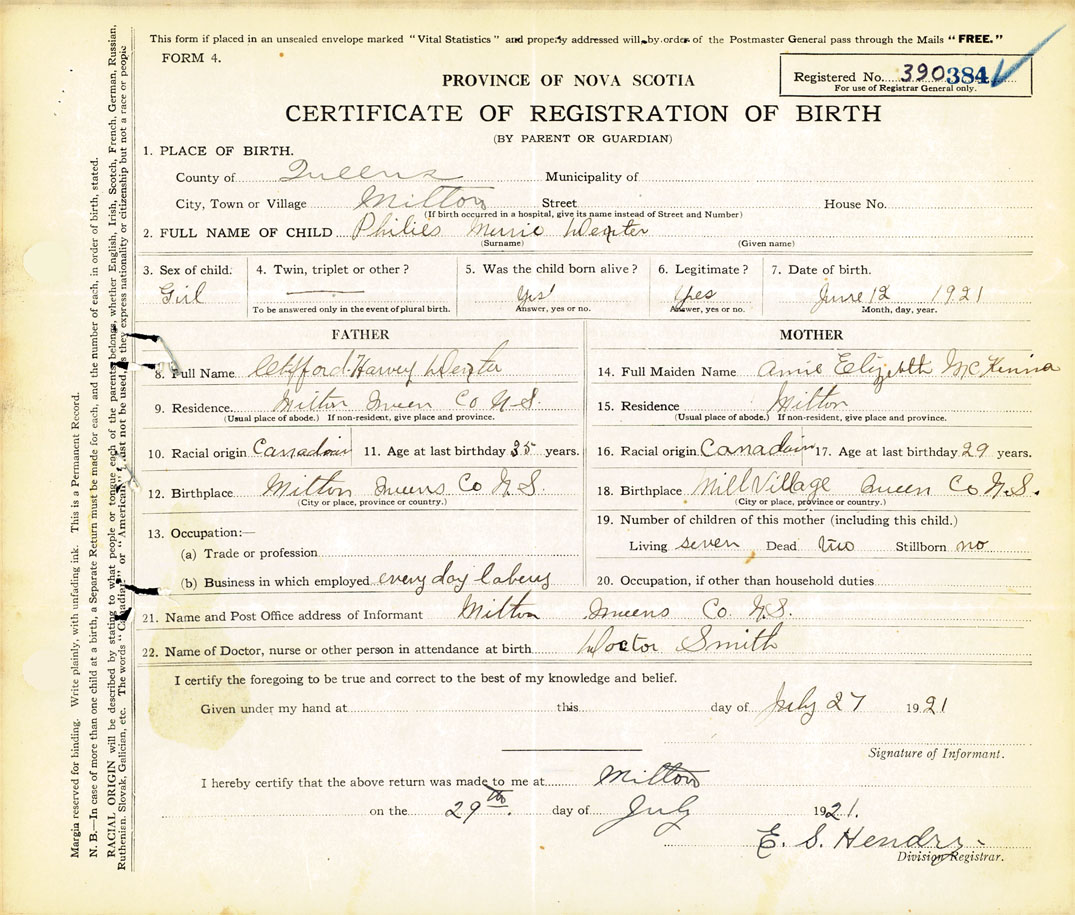 This form if placed in an unsealed envelope marked "Vital Statistics" and properly addressed will, by order of the Postmaster General pass through the Mails "FREE."
FORM 4.
Registered No. 390 384
For use of Registrar General only.
PROVINCE OF NOVA SCOTIA
CERTIFICATE OF REGISTRATION OF BIRTH
(BY PARENT OR GUARDIAN)
1. PLACE OF BIRTH.
County of Queens Municipality of
City, Town or Village Milton Street House No.
(If birth occurred in a hospital, give its name instead of Street and Number)
2. FULL NAME OF CHILD Philies Murie Dexter
(Surname) (Given name)
3. Sex of child. 4. Twin, triplet or other? 5. Was the child born alive? 6. Legitimate? 7. Date of birth.
Girl Yes Yes June 12 1921
To be answered only in the event of plural birth. Answer, yes or no. Answer, yes or no. Month, day, year.
FATHER MOTHER
8. Full Name Clifford Harvey Dexter 14. Full Maiden Name Annie Elizebth McKenna
9. Residence. Milton Queen Co N.S. 15. Residence Milton
(Usual place of abode.) If non-resident, give place and province. (Usual place of abode.) If non-resident, give place and province.
10. Racial origin Canadian 11. Age at last birthday 35 years. 16. Racial origin. Canadain 17. Age at last birthday 29 years.
12. Birthplace Milton Queens Co N.S. 18. Birthplace Mill Village Queen Co N.S.
(City or place, province or country.) (City or place, province or country.)
13. Occupation:— 19. Number of children of this mother (including this child.)
(a) Trade or profession Living seven Dead two Stillborn no
(b) Business in which employed every day labery 20. Occupation, if other than household duties
21. Name and Post Office address of Informant Milton Queens Co. N.S.
22. Name of Doctor, nurse or other person in attendance at birth Doctor Smith
I certify the foregoing to be true and correct to the best of my knowledge and belief.
Given under my hand at this day of July 27 1921
Signature of Informant.
I hereby certify that the above return was made to me at Milton
on the 29th. day of July 1921.
E. S. Hendry
Division Registrar.
Margin reserved for binding. Write plainly, with unfading ink. This is a Permanent Record.
N. B.—In case of more than one child at a birth, a Separate Return must be made for each, and the number of each, in order of birth, stated.
RACIAL ORIGIN will be described by stating to what people or tongue each of the parents belongs, whether English, Irish, Scotch, French, German, Russian,
Ruthenian, Slovak, Galician, etc. The words "Canadian" or "American" must not be used, as they express nationality or citizenship but not a race or people